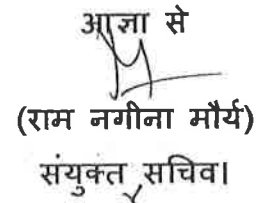 आज्ञा से
(राम नगीना मौर्य)
संयुक्त सचिव।